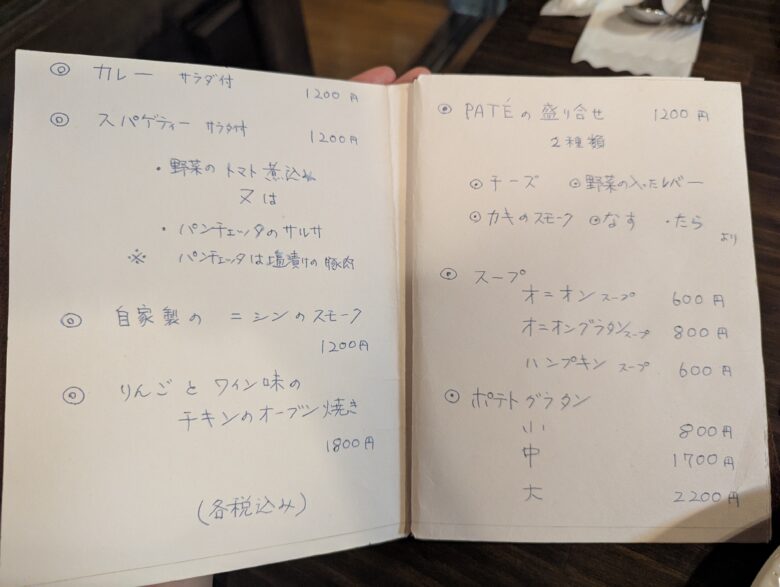 ◎ カレー サラダ付
1200円
◎ スパゲティー サラダ付
1200円
・野菜のトマト煮込み
又は
・パンチェッタのサルサ
※ パンチェッタは塩漬けの豚肉
◎ 自家製の ニシンのスモーク
1200円
◎ りんごと ワイン味の
チキンのオーブン焼き
1800円
(各税込み)
◎ PATÉの盛り合せ 1200円
2種類
◎チーズ ◎野菜の入ったレバー
◎カキのスモーク ◎なす ・たら
より
◎ スープ
オニオンスープ 600円
オニオングラタンスープ 800円
ハンプキン スープ 600円
◎ ポテトグラタン
小 800円
中 1700円
大 2200円